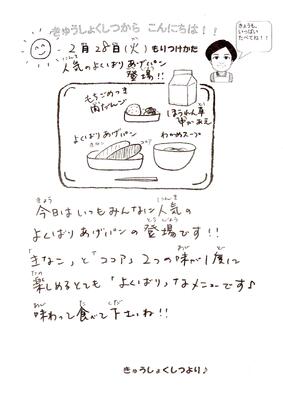 きゅうしょくしつから こんにちは！！
きょうも、
いっぱい
たべてね！！
2月28日(火) もりつけかた
人気のよくばりあげパン
登場!!
もちごめつき
肉だんご
ほうれん草
よくばりあげパン
きなこ
ココア
わかめスープ
今日はいつもみんなに人気の
よくばりあげパンの登場です!!
「きなこ」と「ココア」2つの味が1度に
楽しめるとても「よくばり」なメニューです♪
味わって食べて下さいね!!
きゅうしょくしつより♪